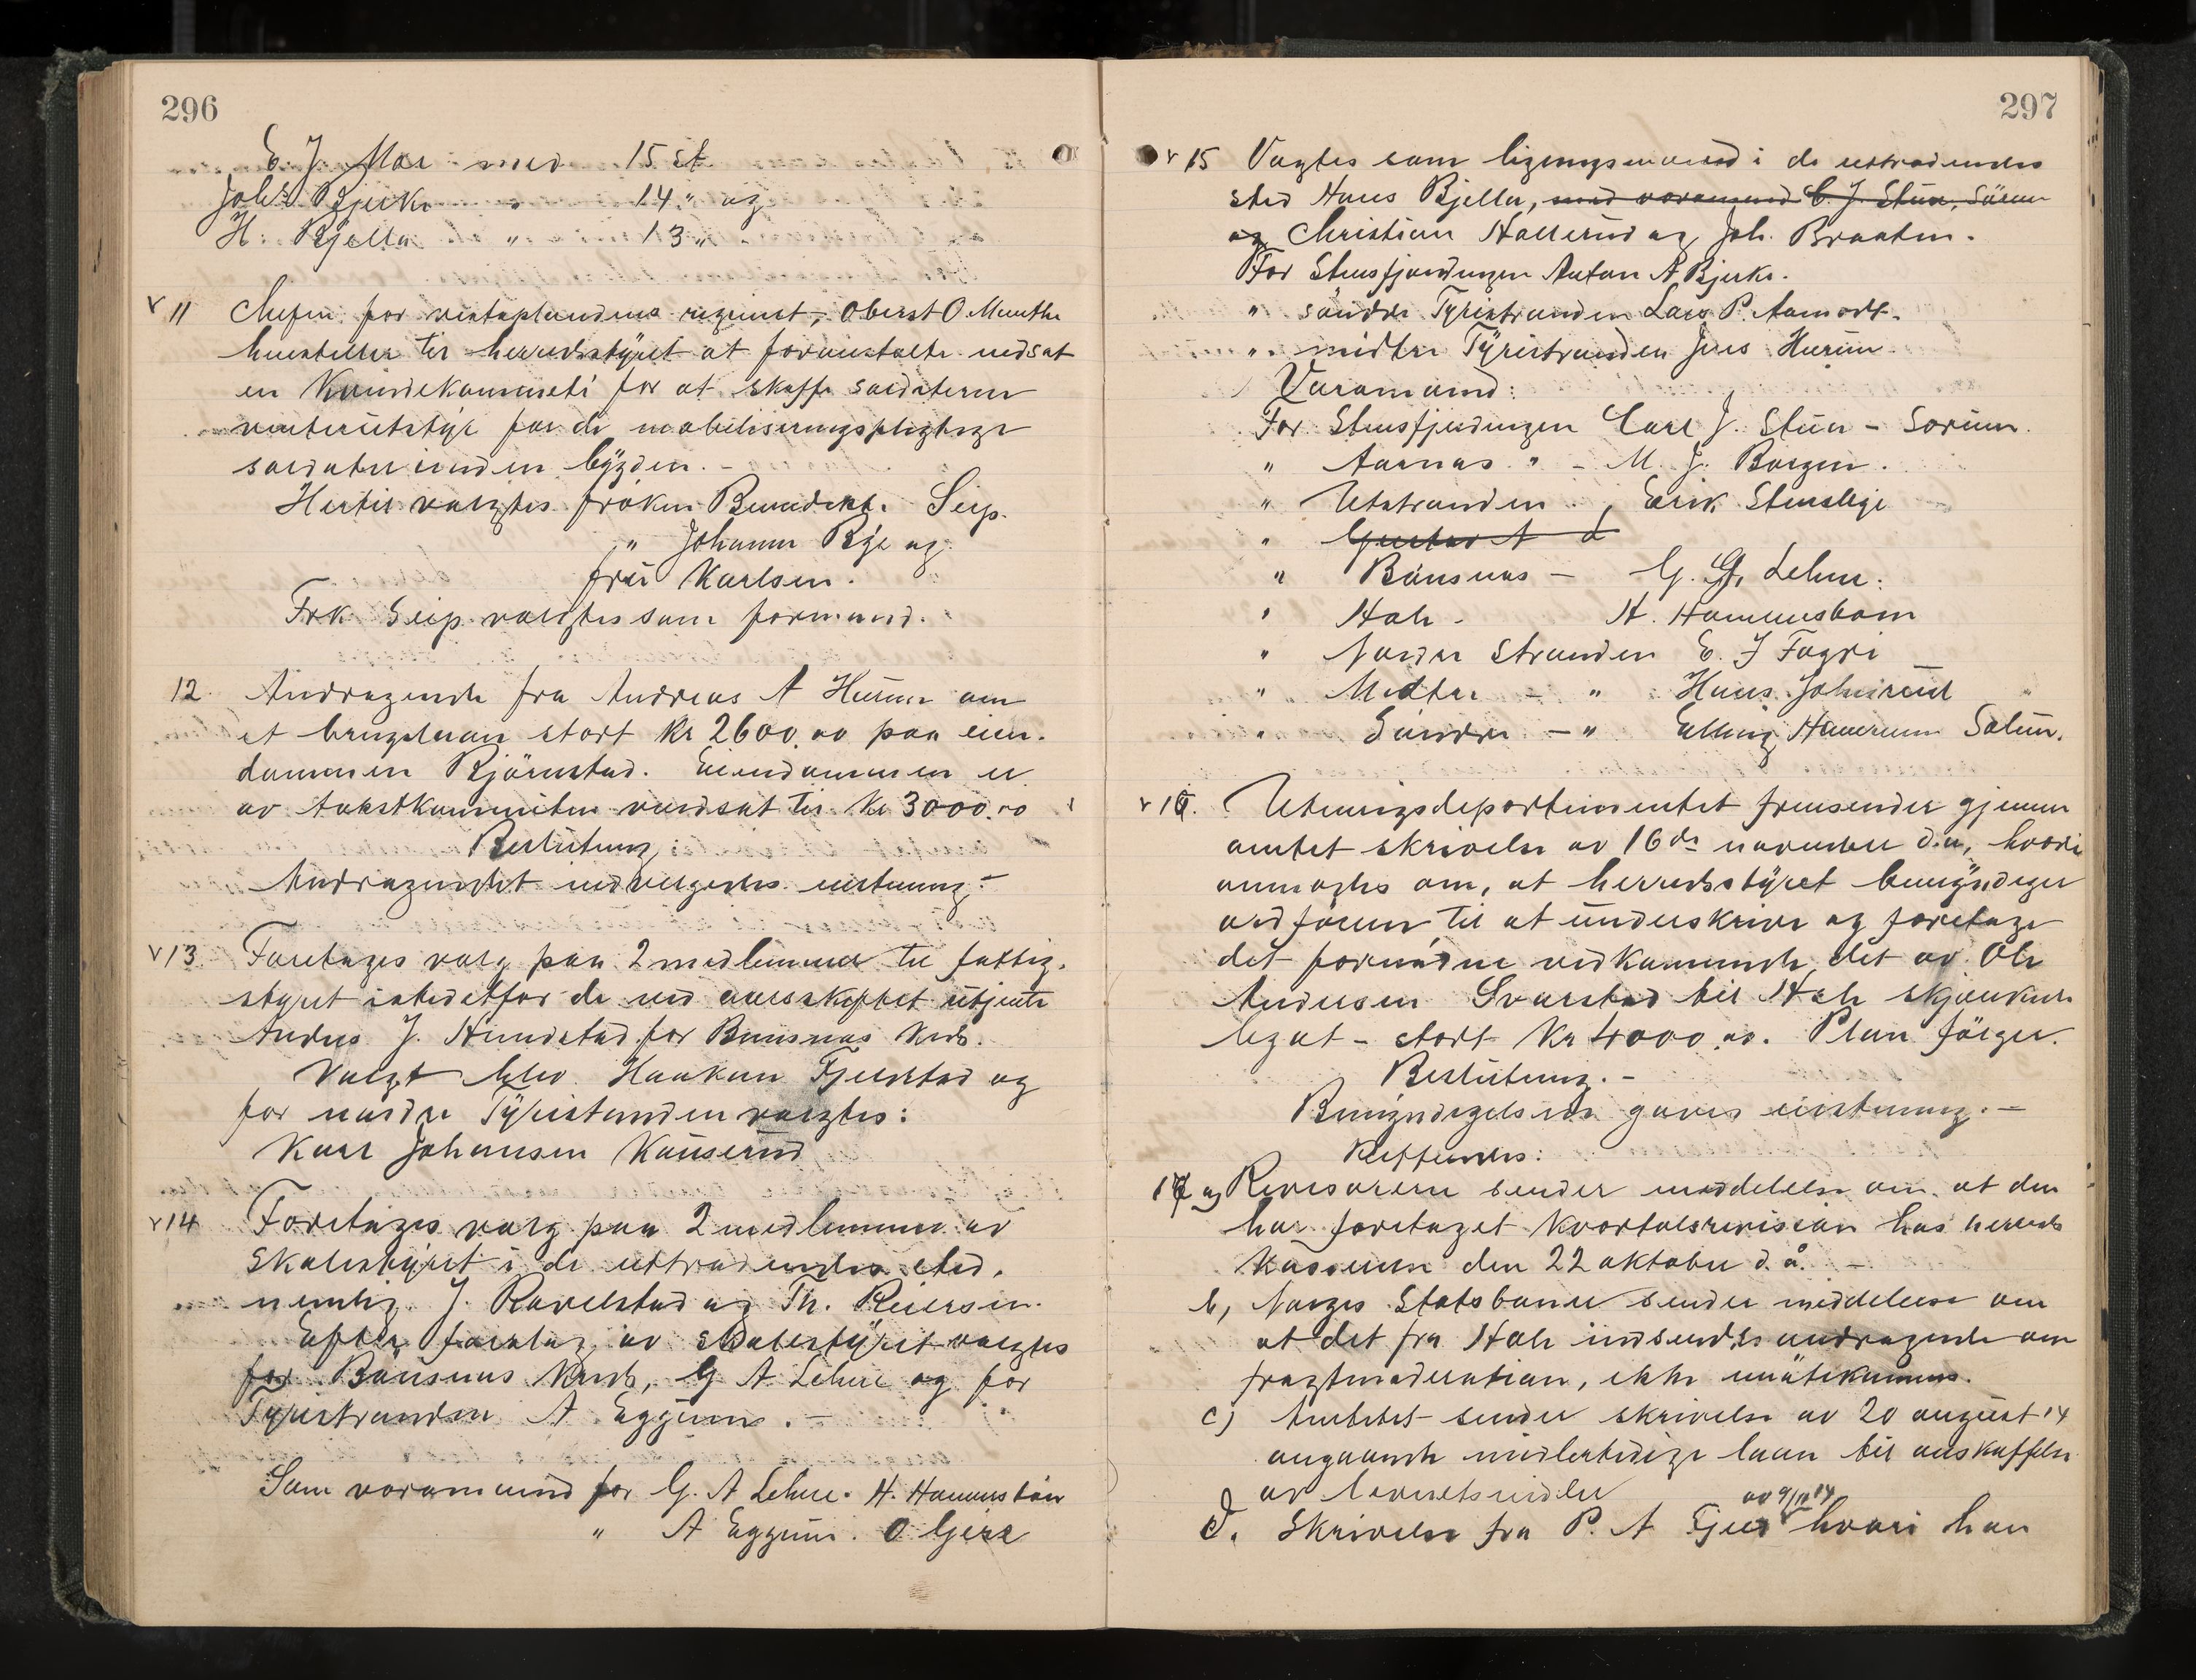 296
E. J. Moe med 15 st
Johs Bjerke " 14 " og
H. Bjella " 13 "
v 11 Chefen for vestoplandens regiment, Oberst O Munthe
henstiller til herredsstyret at foranstalte nedsat
en Kvindekommité for at skaffe soldaterne
vinterutstyr for de mobiliseringspligtige
soldater inden bygden. -
Hertil valgtes frøken Benedikte Seip.
" Johanne Bye og
fru Karlsen.
Frk Seip valgtes som formand.
12. Andragende fra Andreas A Hurum om
et brugslaan stort kr 2600.00 paa eien-
dommen Bjørnstad. Eiendommen er
av takstkommiten verdsat til kr 3000.00
Beslutning:
Andragendet indvilgedes enstemmig. -
v 13 Foretages valg paa 2 medlemmer til fattig-
styret istedetfor de ved aarsskiftet utgjente
Anders J. Hundstad for Bønsnes kreds.
Valgt blev Haakon Fjeldstad og
for nordre Tyristranden valgtes:
Karl Johansen Kauserud
v 14 Foretages valg paa 2 medlemmer av
skolestyret i de uttrædendes sted,
nemlig J. Ravelstad og Th. Reiersen.
Efter forslag av skolestyret valgtes
for Bønsnes kreds, G A Lehne og for
Tyristranden A Eggum. -
Som varamænd for G. A Lehne. H. Hamnesbøen
" A Eggum. O Gjesz
297
v 15 Valgtes som ligningsmænd i de uttrædendes
sted Hans Bjella, med varamand C. J. Stün, Sörum
og Christian Hallerud og Joh. Braaten.
For Stensfjerdingen Anton A Bjerke.
" söndre Tyristranden Lars P. Aamodt.
" midtre Tyristranden Jens Hurum
Varamænd:
For Stensfjerdingen Carl J. Stün - Sorum.
" Aarnes " - M. J. Borgen.
" Utstranden , Erik Stensleje
" Gustav A d
" Bönsnes - G. G. Lehne.
" Hole - H. Hamnesboen
" Nordre Stranden E. J Fagri
" Midtre - " Hans Johnsrud
" Söndre - " Elling Haverum Solum.
v 16. Utenrigsdepartementet fremsender gjennem
amtet skrivelse av 16de november d.a, hvori
anmodes om, at herredsstyret bemyndiger
ordföreren til at underskrive og foretage
det fornödne vedkommende det av Ole
Andersen Svarstad til Hole skjænkede
legat - stort kr 4000.00. Plan fölger.
Beslutning. -
Bemyndigelsen gaves enstemmig. -
Refferertes:
17 a) Revisorerne sender meddelelse om at den
har foretaget kvartalsrevision hos herreds
kassereren den 22 oktober d. å. -
b, Norges Statsbaner sender meddelelse om
at det fra Hole indsendte andragende om
fragtmoderation, ikke imötekommes.
c) Amtet sender skrivelse av 20 august 14
angaaende midlertidige laan til anskaffelse
av levnetsmidler
d. Skrivelse fra P. A Fjeld av 9/11 14 hvori han